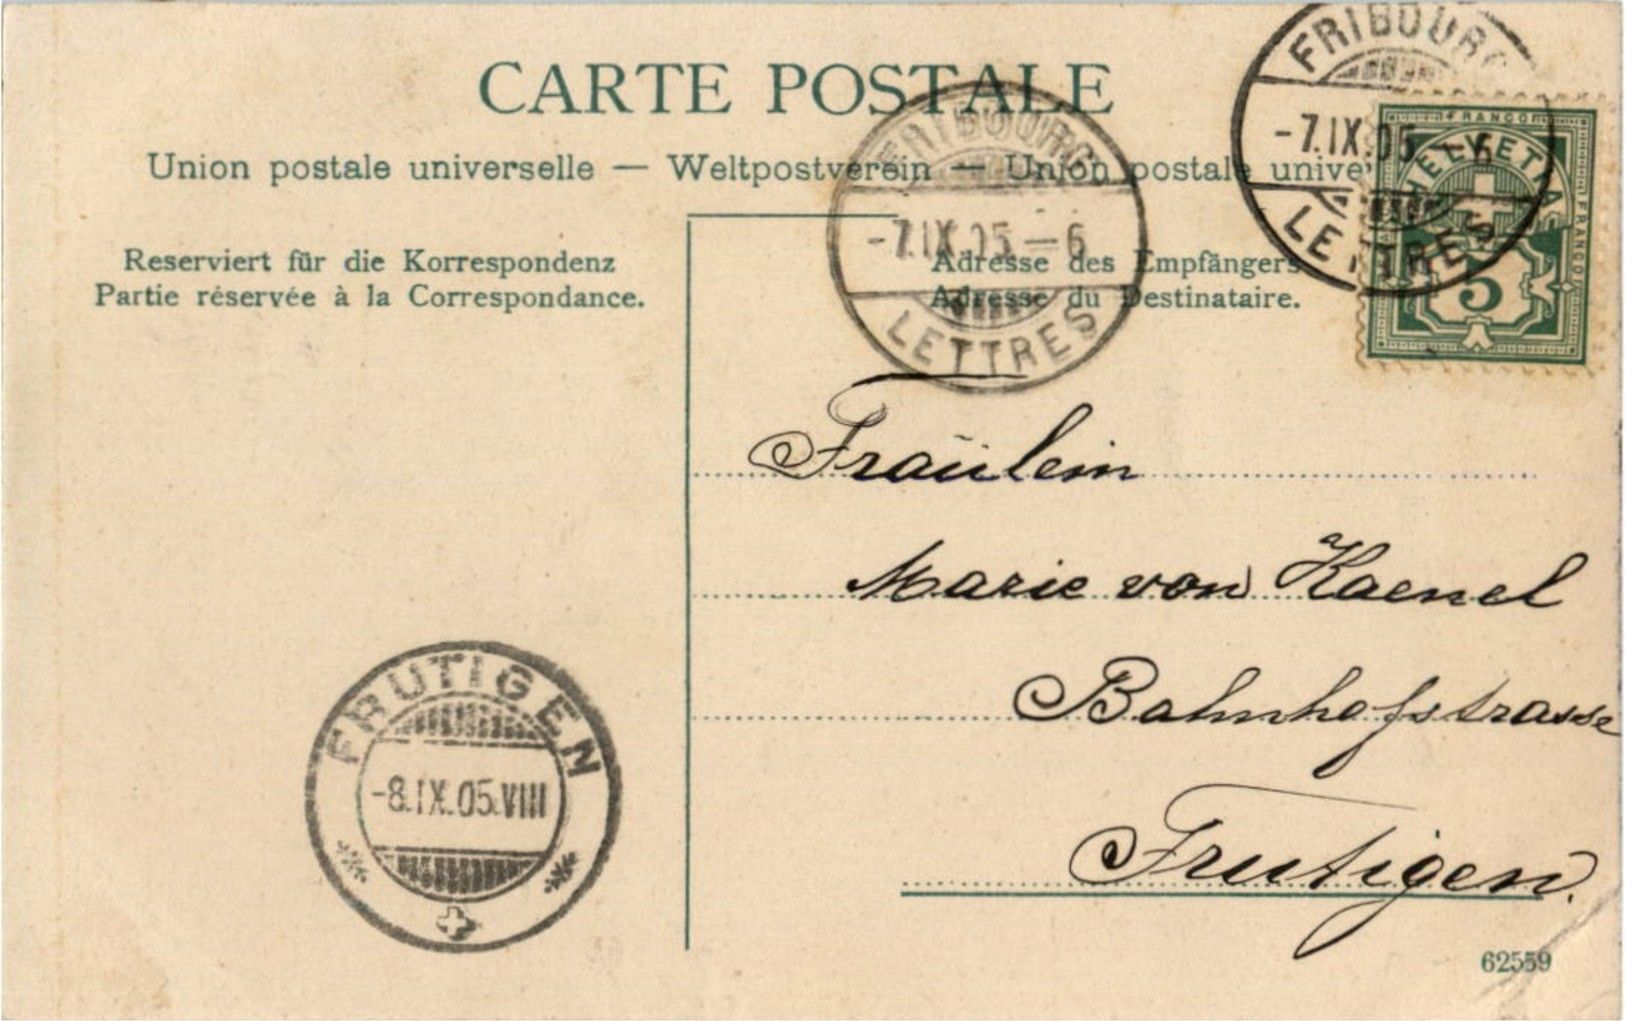 CARTE POSTALE
Union postale universelle — Weltpostverein — Union postale unive
Reserviert für die Korrespondenz
Partie réservée à la Correspondance.
Adresse des Empfängers
Adresse du Destinataire.
FRIBOURG
-7.IX.05-6
LETTRES
FRIBOURG
-7.IX.05
LETTRES
FRANCO
HELVETIA
FRANCO
5
Fräulein
Marie von Kaenel
Bahnhofstrasse
Frutigen.
FRUTIGEN
-8.IX.05.VIII
62559